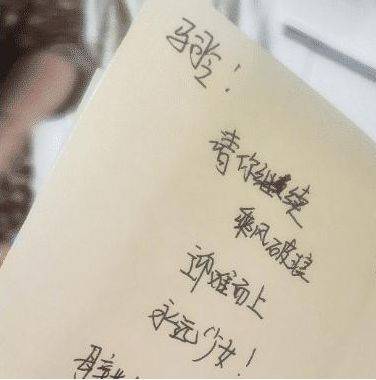 请你继续
乘风破浪
迎难而上
永远少女！